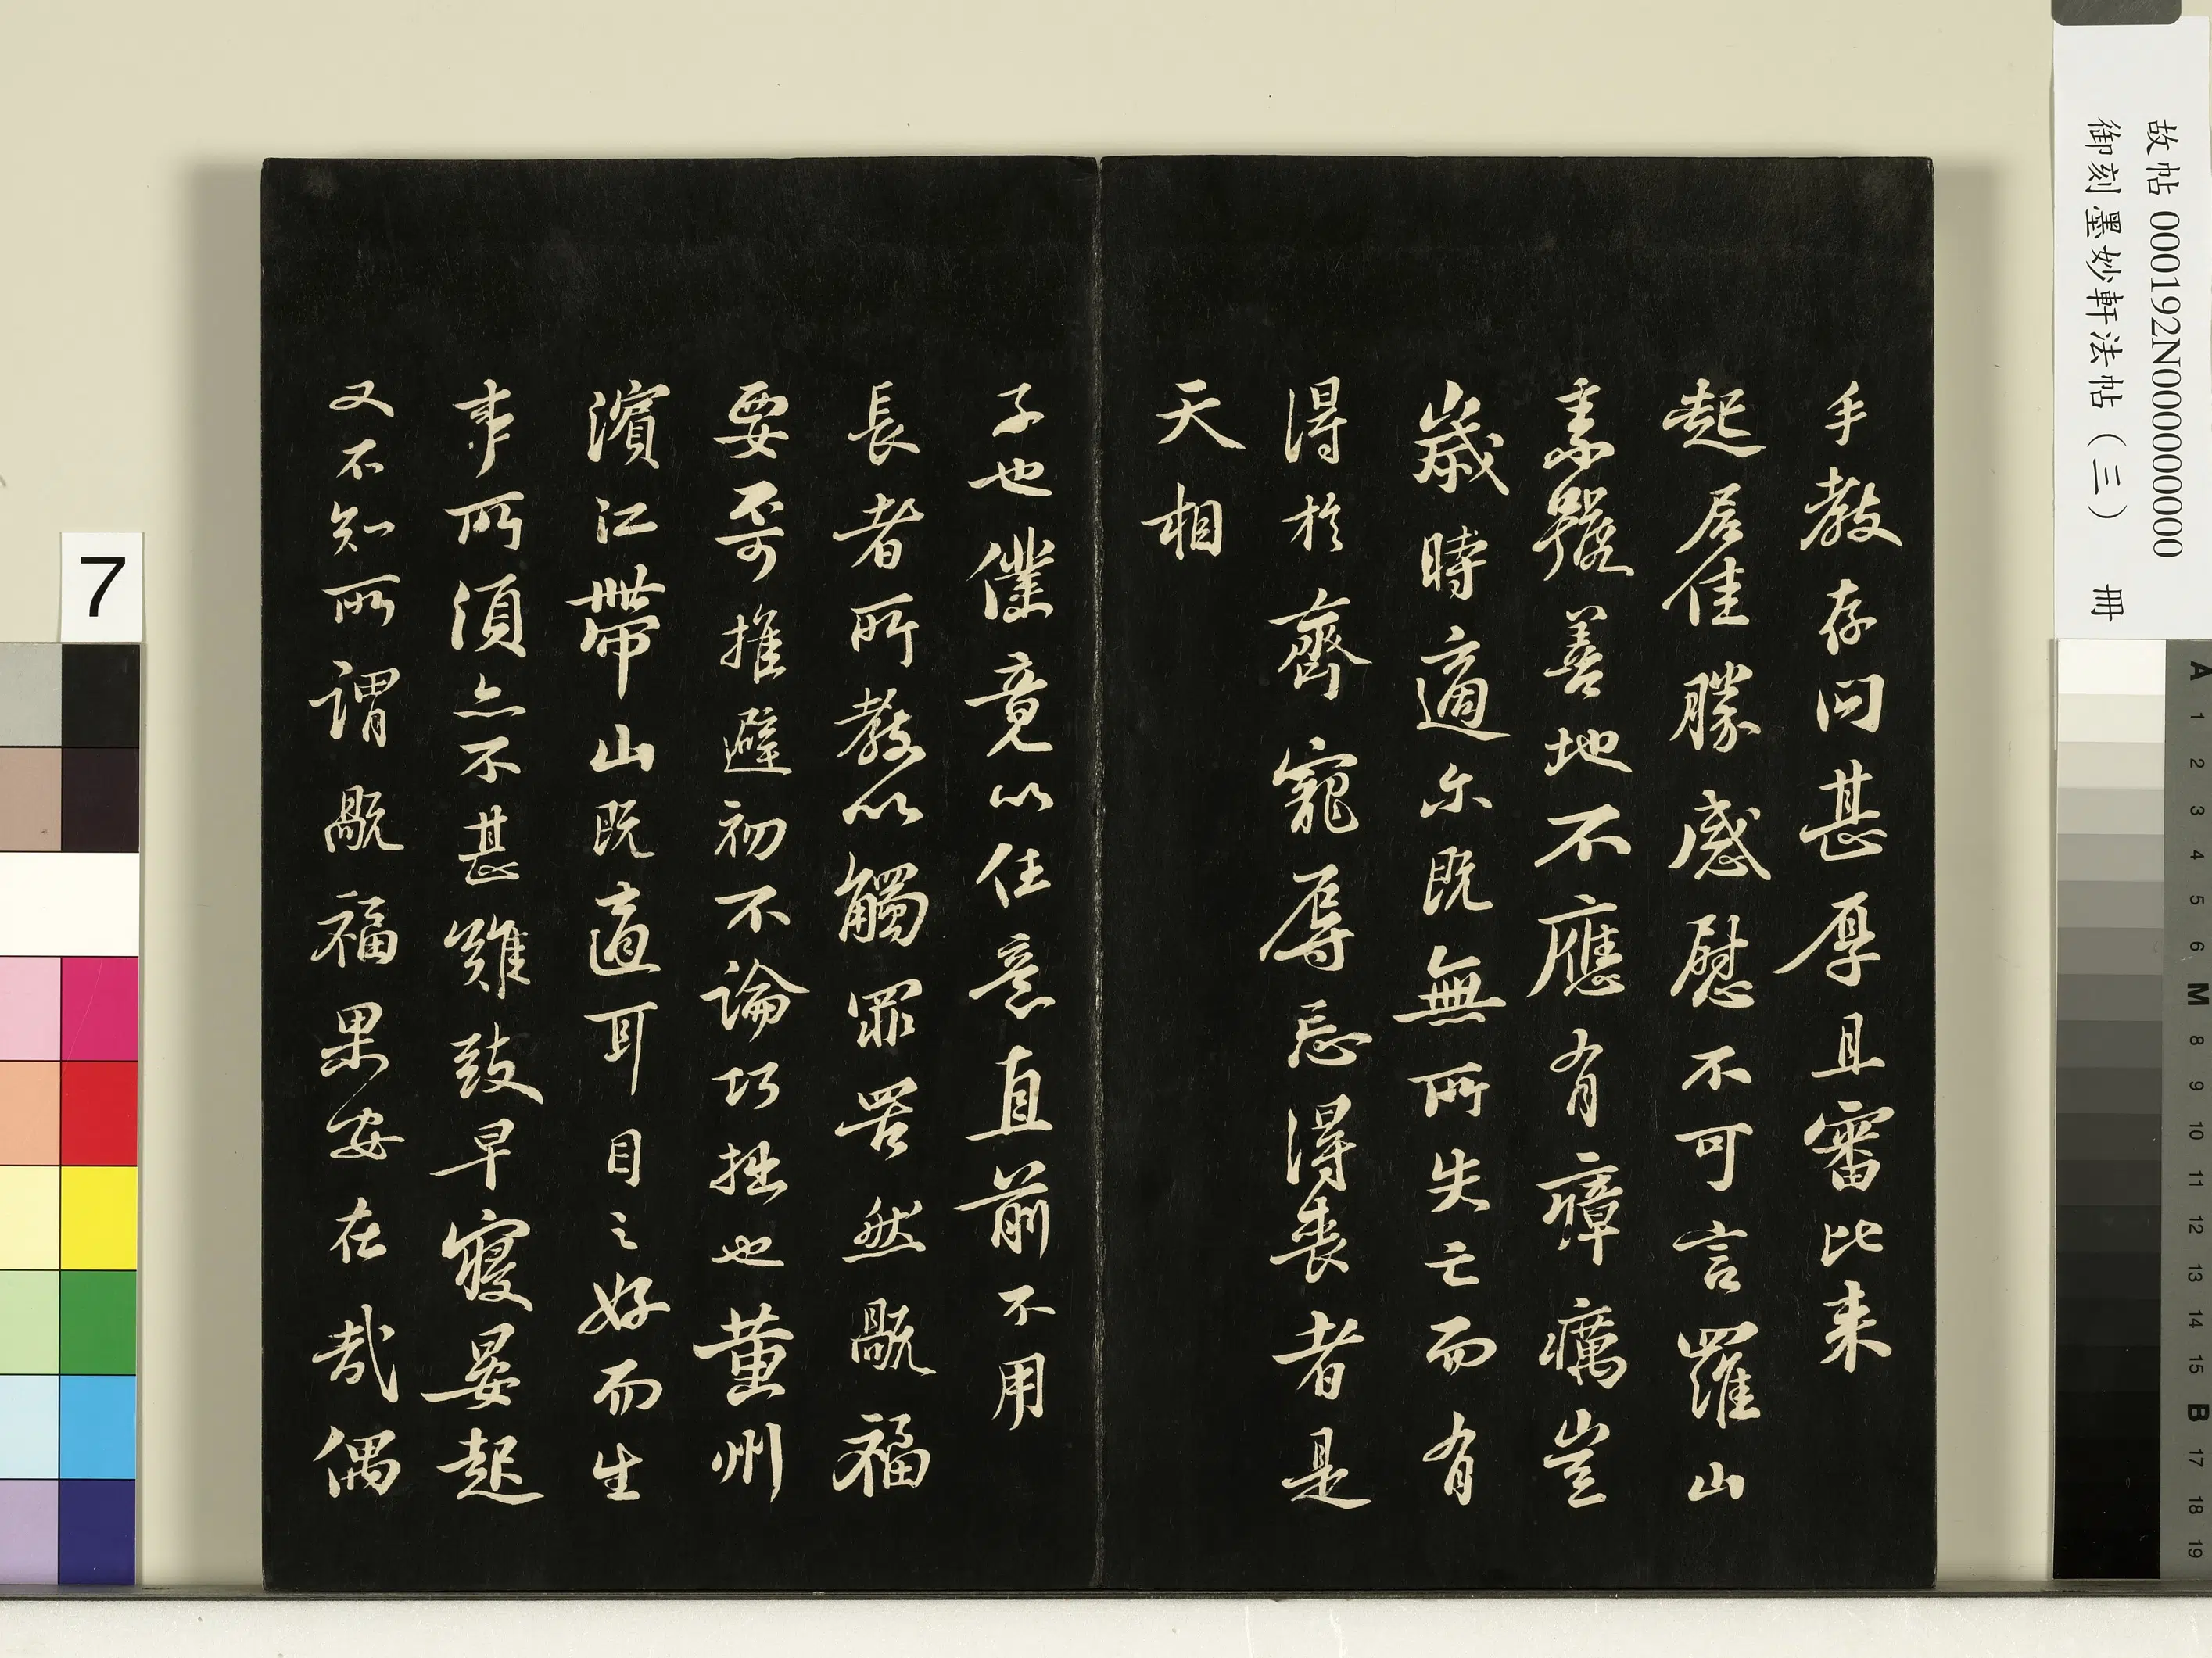 故帖 000192N000000000
御刻墨妙軒法帖（三） 冊
手教存問甚厚且審比来
起居佳勝感慰不可言羅山
素號善地不應有瘴癘豈
歲時適尓既無所失亡而有
得於齊寵辱忘得喪者是
天相
子也僕竟以任意直前不用
長者所教以觸罪罟然旤福
要不可推避初不論巧拙也黄州
濱江帶山既適耳目之好而生
事所須亦不甚難致早寢晏起
又不知所謂旤福果安在哉偶
7
A 1 2 3 4 5 6 M 8 9 10 11 12 13 14 15 B 17 18 19